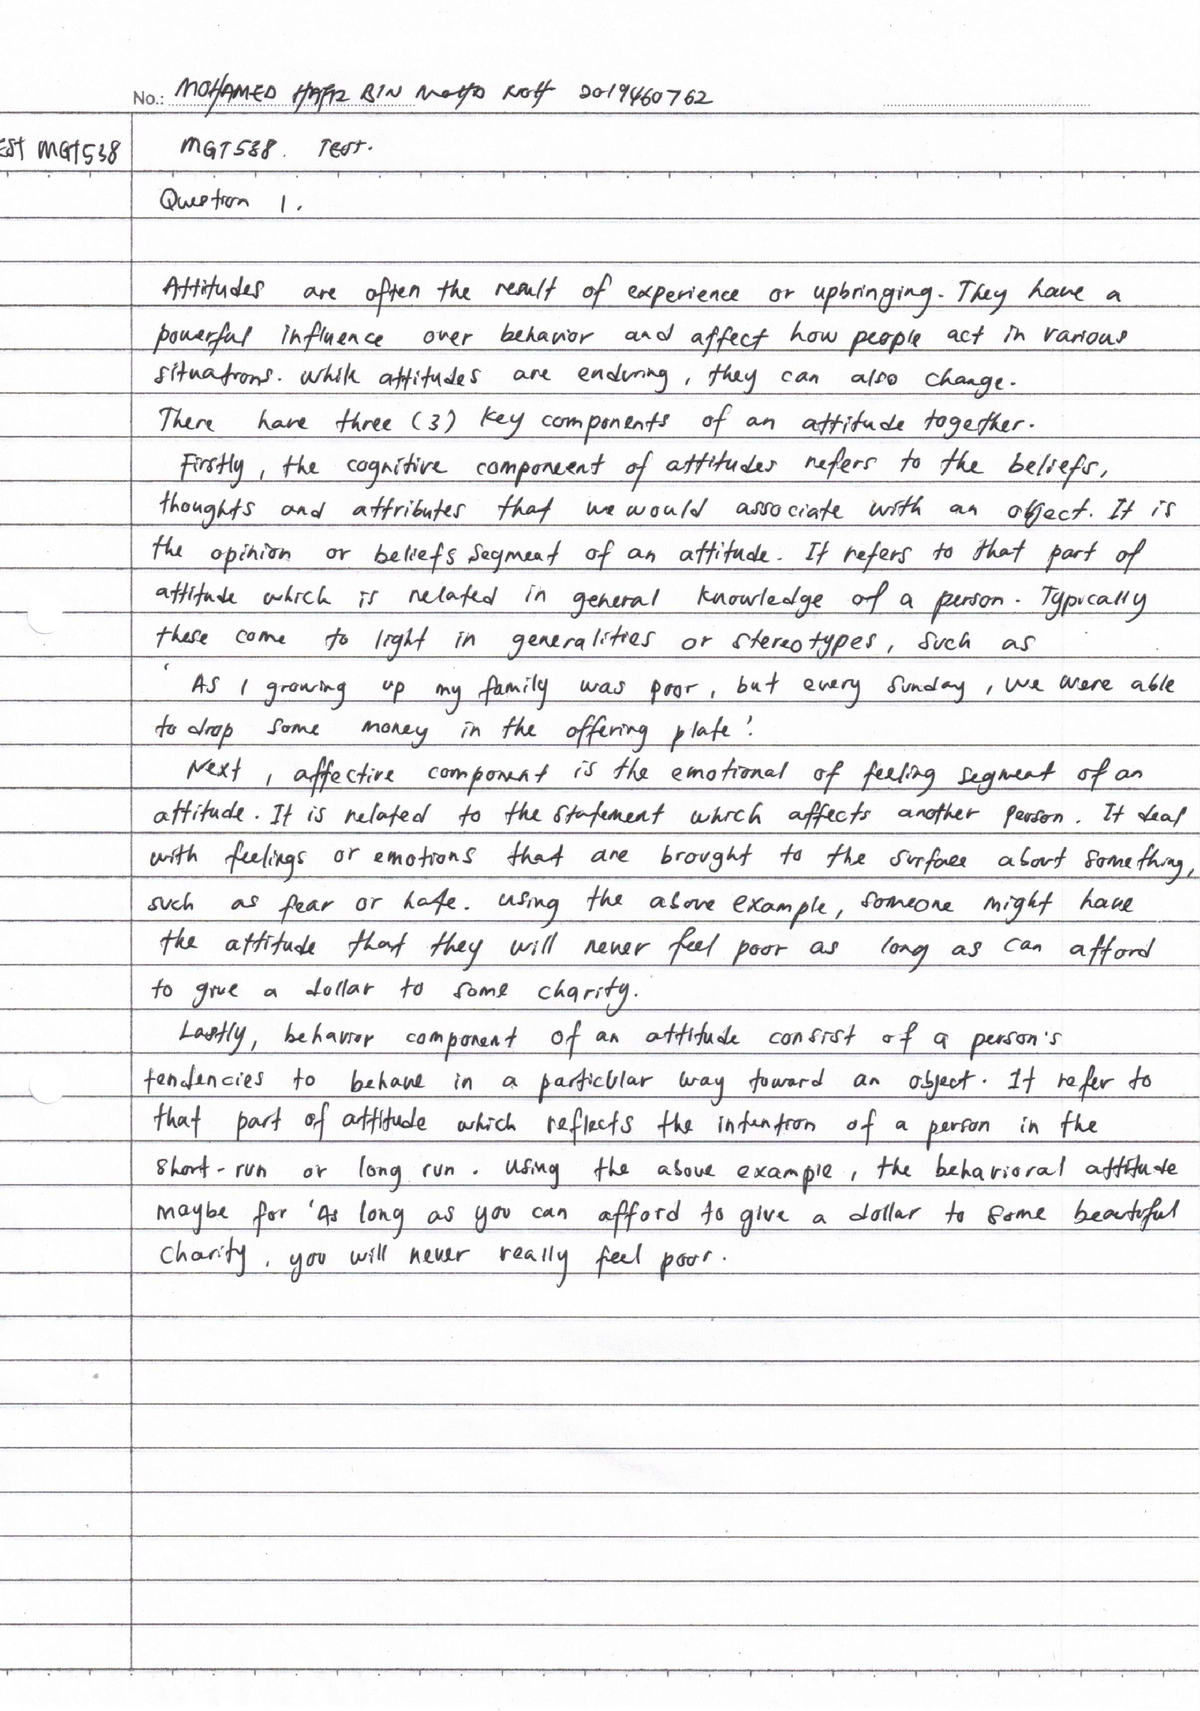 No.: MOHAMED HAFIZ BIN MOHD NOH 2019460762
EST MGT538 MGT538. Test.
Question 1.
Attitudes are often the result of experience or upbringing. They have a
powerful influence over behavior and affect how people act in various
situations. while attitudes are enduring, they can also change.
There have three (3) key components of an attitude together.
Firstly, the cognitive componeent of attitudes refers to the beliefs,
thoughts and attributes that we would associate with an object. It is
the opinion or beliefs segment of an attitude. It refers to that part of
attitude which is related in general knowledge of a person. Typically
these come to light in generalities or stereotypes, such as
' As I growing up my family was poor, but every Sunday, we were able
to drop some money in the offering plate'.
Next, affective component is the emotional of feeling segment of an
attitude. It is related to the statement which affects another person. It deal
with feelings or emotions that are brought to the surface about something,
such as fear or hate. using the above example, someone might have
the attitude that they will never feel poor as long as can afford
to give a dollar to some charity.
Lastly, behavior component of an attitude consist of a person's
tendencies to behave in a particular way toward an object. It refer to
that part of attitude which reflects the intention of a person in the
short-run or long run. using the above example, the behavioral attitude
maybe for 'As long as you can afford to give a dollar to some beautiful
charity, you will never really feel poor.